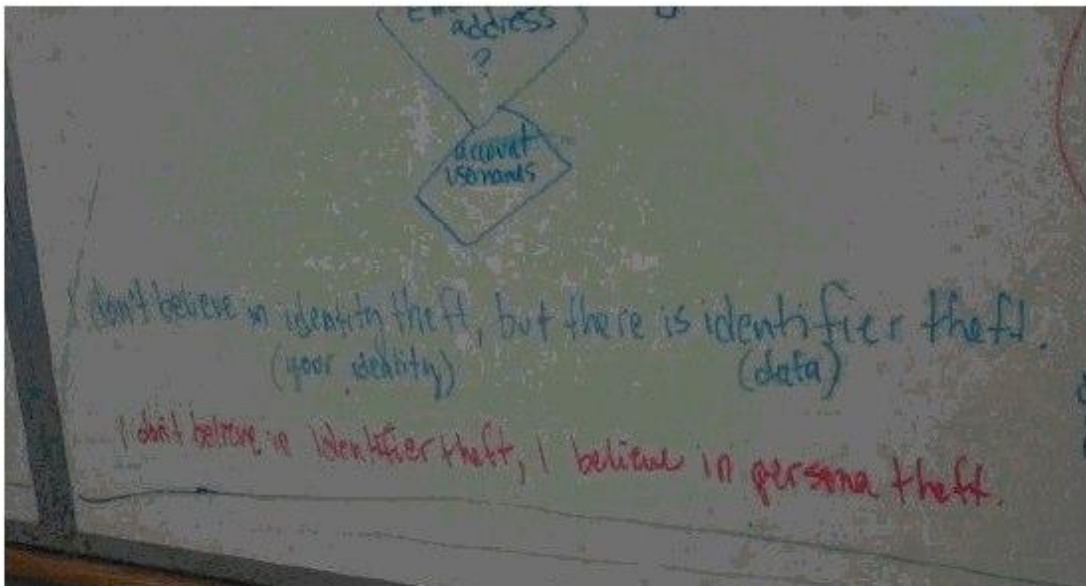 address
?
account
I don't believe in identity theft, but there is identifier theft.
(your identity) (data)
I don't believe in identifier theft, I believe in persona theft.